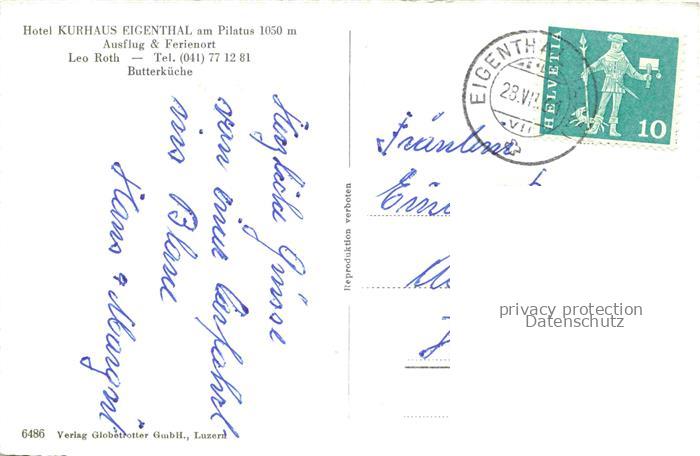 Hotel KURHAUS EIGENTHAL am Pilatus 1050 m
Ausflug & Ferienort
Leo Roth — Tel. (041) 77 12 81
Butterküche
Herzliche Grüsse
von einer Carfahrt
ins Blaue
Hans & Margrit
6486 Verlag Globetrotter GmbH., Luzern
Reproduktion verboten
EIGENTHAL
28.VII.
HELVETIA
10
Fräulein
privacy protection
Datenschutz